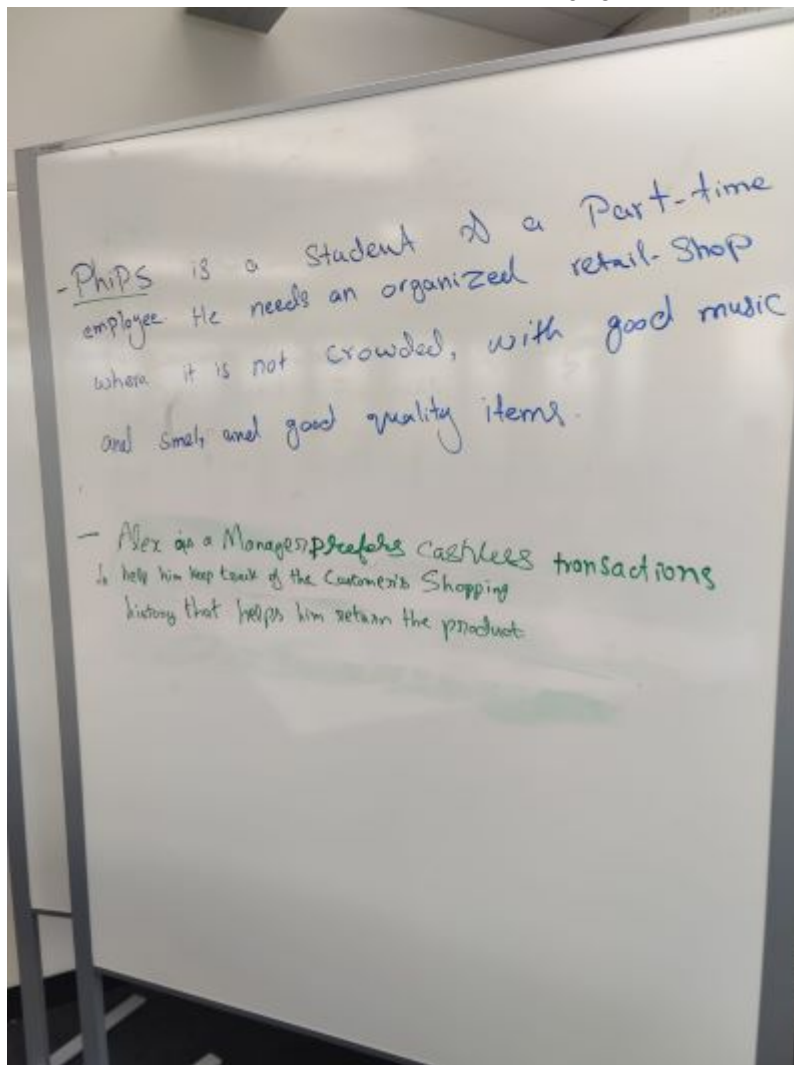 - Phips is a student & a Part-time
employee. He needs an organized retail-shop
where it is not crowded, with good music
and smel, and good quality items.
- Alex as a Manager, prefers cashless transactions
to help him keep track of the Customer's Shopping
history that helps him return the product.